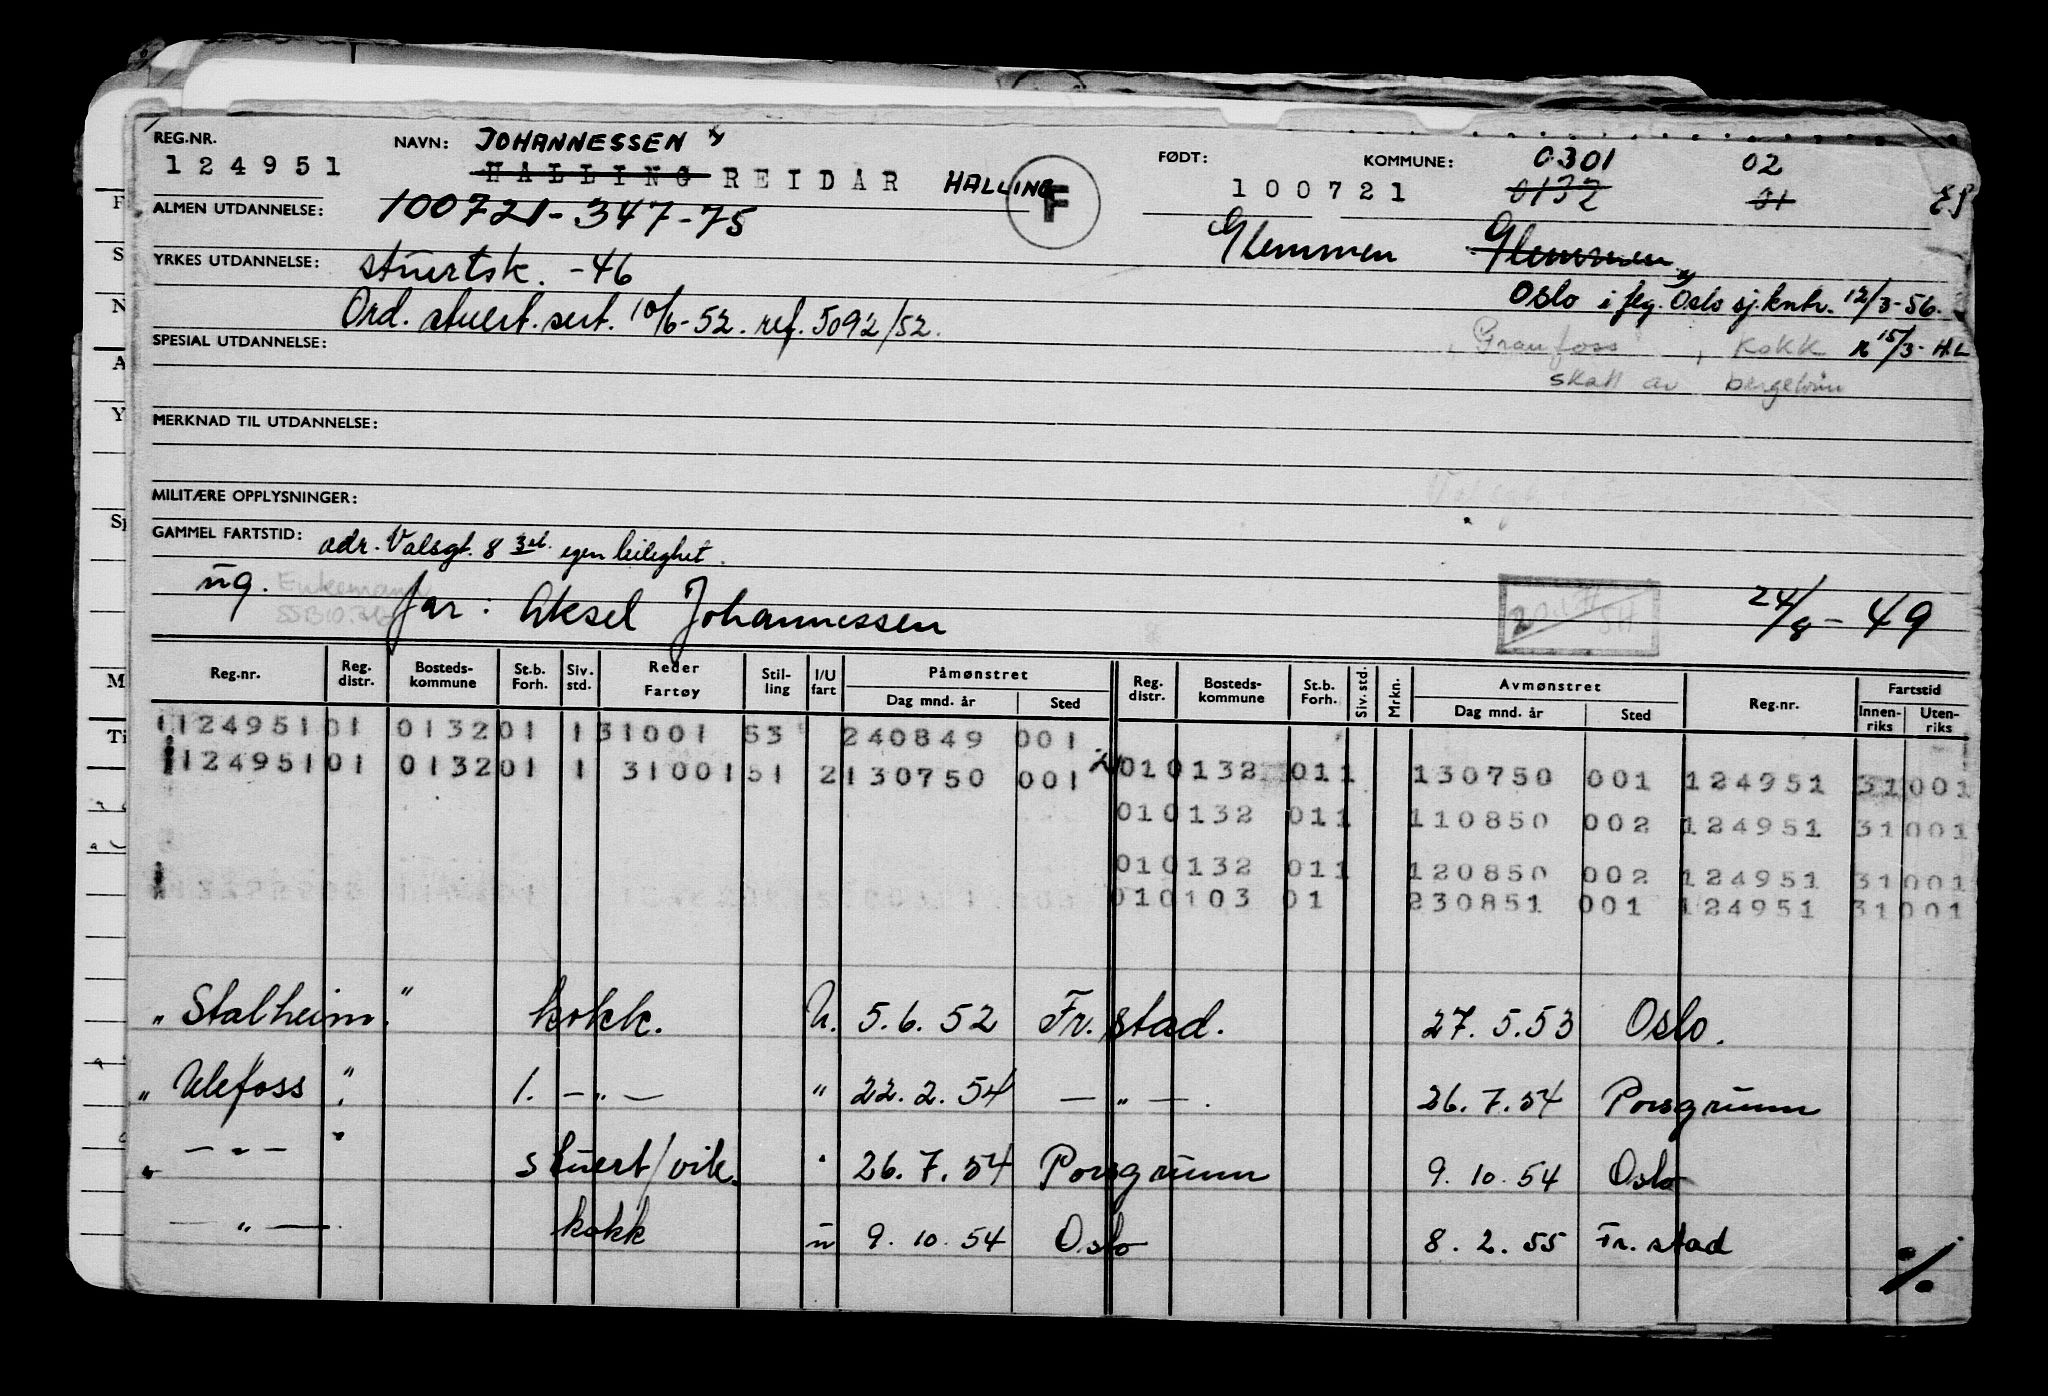 REG.NR. NAVN: JOHANNESSEN FØDT: KOMMUNE: 0301 02
124951 HALLING REIDAR HALLING F 100721 0132 01
ALMEN UTDANNELSE: 100721-347-75 Glemmen Glemmen
YRKES UTDANNELSE: stuertsk. -46
Oslo i flg. Oslo sj.kntr. 12/3-56.
Ord. stuert. sert. 10/6-52. ref. 5092/52.
SPESIAL UTDANNELSE: Granfoss, kokk 15/3- HL
skatt av
MERKNAD TIL UTDANNELSE:
MILITÆRE OPPLYSNINGER:
GAMMEL FARTSTID: adr. Valsgt. 8 egen leilighet.
ug. Enkemann
far: Aksel Johannessen 24/8-49
Reg.nr. Reg. distr. Bosteds-kommune St.b. Forh. Siv. std. Reder Fartøy Stil-ling I/U fart Påmønstret Dag mnd. år Sted Reg. distr. Bosteds-kommune St.b. Forh. Siv. std. Mrkn. Avmønstret Dag mnd. år Sted Reg.nr. Fartstid Innen-riks Uten-riks
1124951 01 0132 01 1 31001 53 240849 001
1124951 01 0132 01 1 31001 51 2 130750 001 010132 011 130750 001 124951 31001
010132 011 110850 002 124951 31001
010132 011 120850 002 124951 31001
010103 01 230851 001 124951 31001
"Stalheim." kokk. U. 5.6.52 Fr.stad. 27.5.53 Oslo.
"Ulefoss" 1. —"— " 22.2.54 —"—. 26.7.54 Porsgrunn
"—"—" stuert/vik. " 26.7.54 Porsgrunn 9.10.54 Oslo
—"— kokk u 9.10.54 Oslo 8.2.55 Fr.stad
./.